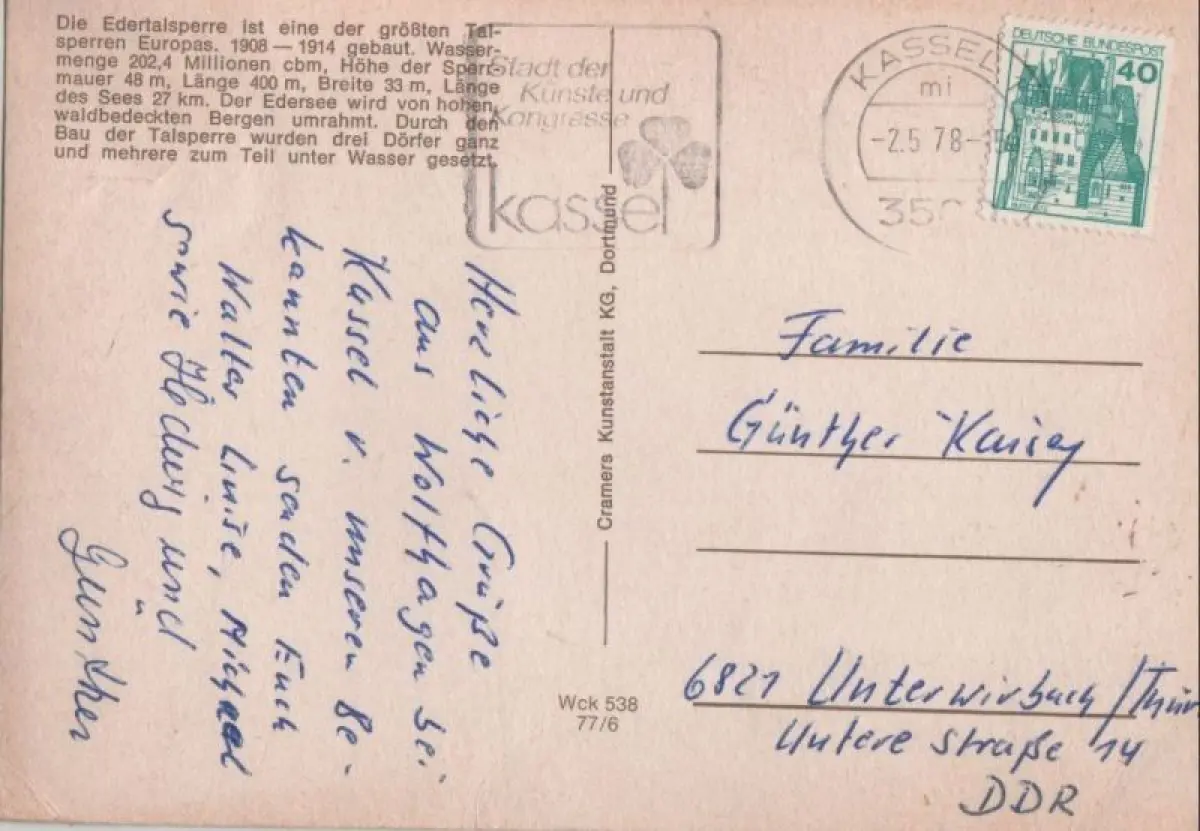 Die Edertalsperre ist eine der größten Tal-
sperren Europas. 1908 — 1914 gebaut. Wasser-
menge 202,4 Millionen cbm, Höhe der Sperr-
mauer 48 m, Länge 400 m, Breite 33 m, Länge
des Sees 27 km. Der Edersee wird von hohen,
waldbedeckten Bergen umrahmt. Durch den
Bau der Talsperre wurden drei Dörfer ganz
und mehrere zum Teil unter Wasser gesetzt.
Stadt der
Künste und
Kongresse
kassel
KASSEL
mi
-2.5.78-
DEUTSCHE BUNDESPOST
40
Herzliche Grüße
aus Wolfhagen bei
Kassel v. unseren Be-
kannten senden Euch
Walter Luise, Michael
sowie Hedwig und
Günther
Cramers Kunstanstalt KG, Dortmund
Wck 538
77/6
Familie
Günther
6821 Unterwirbach/Thür
Untere Straße 14
DDR